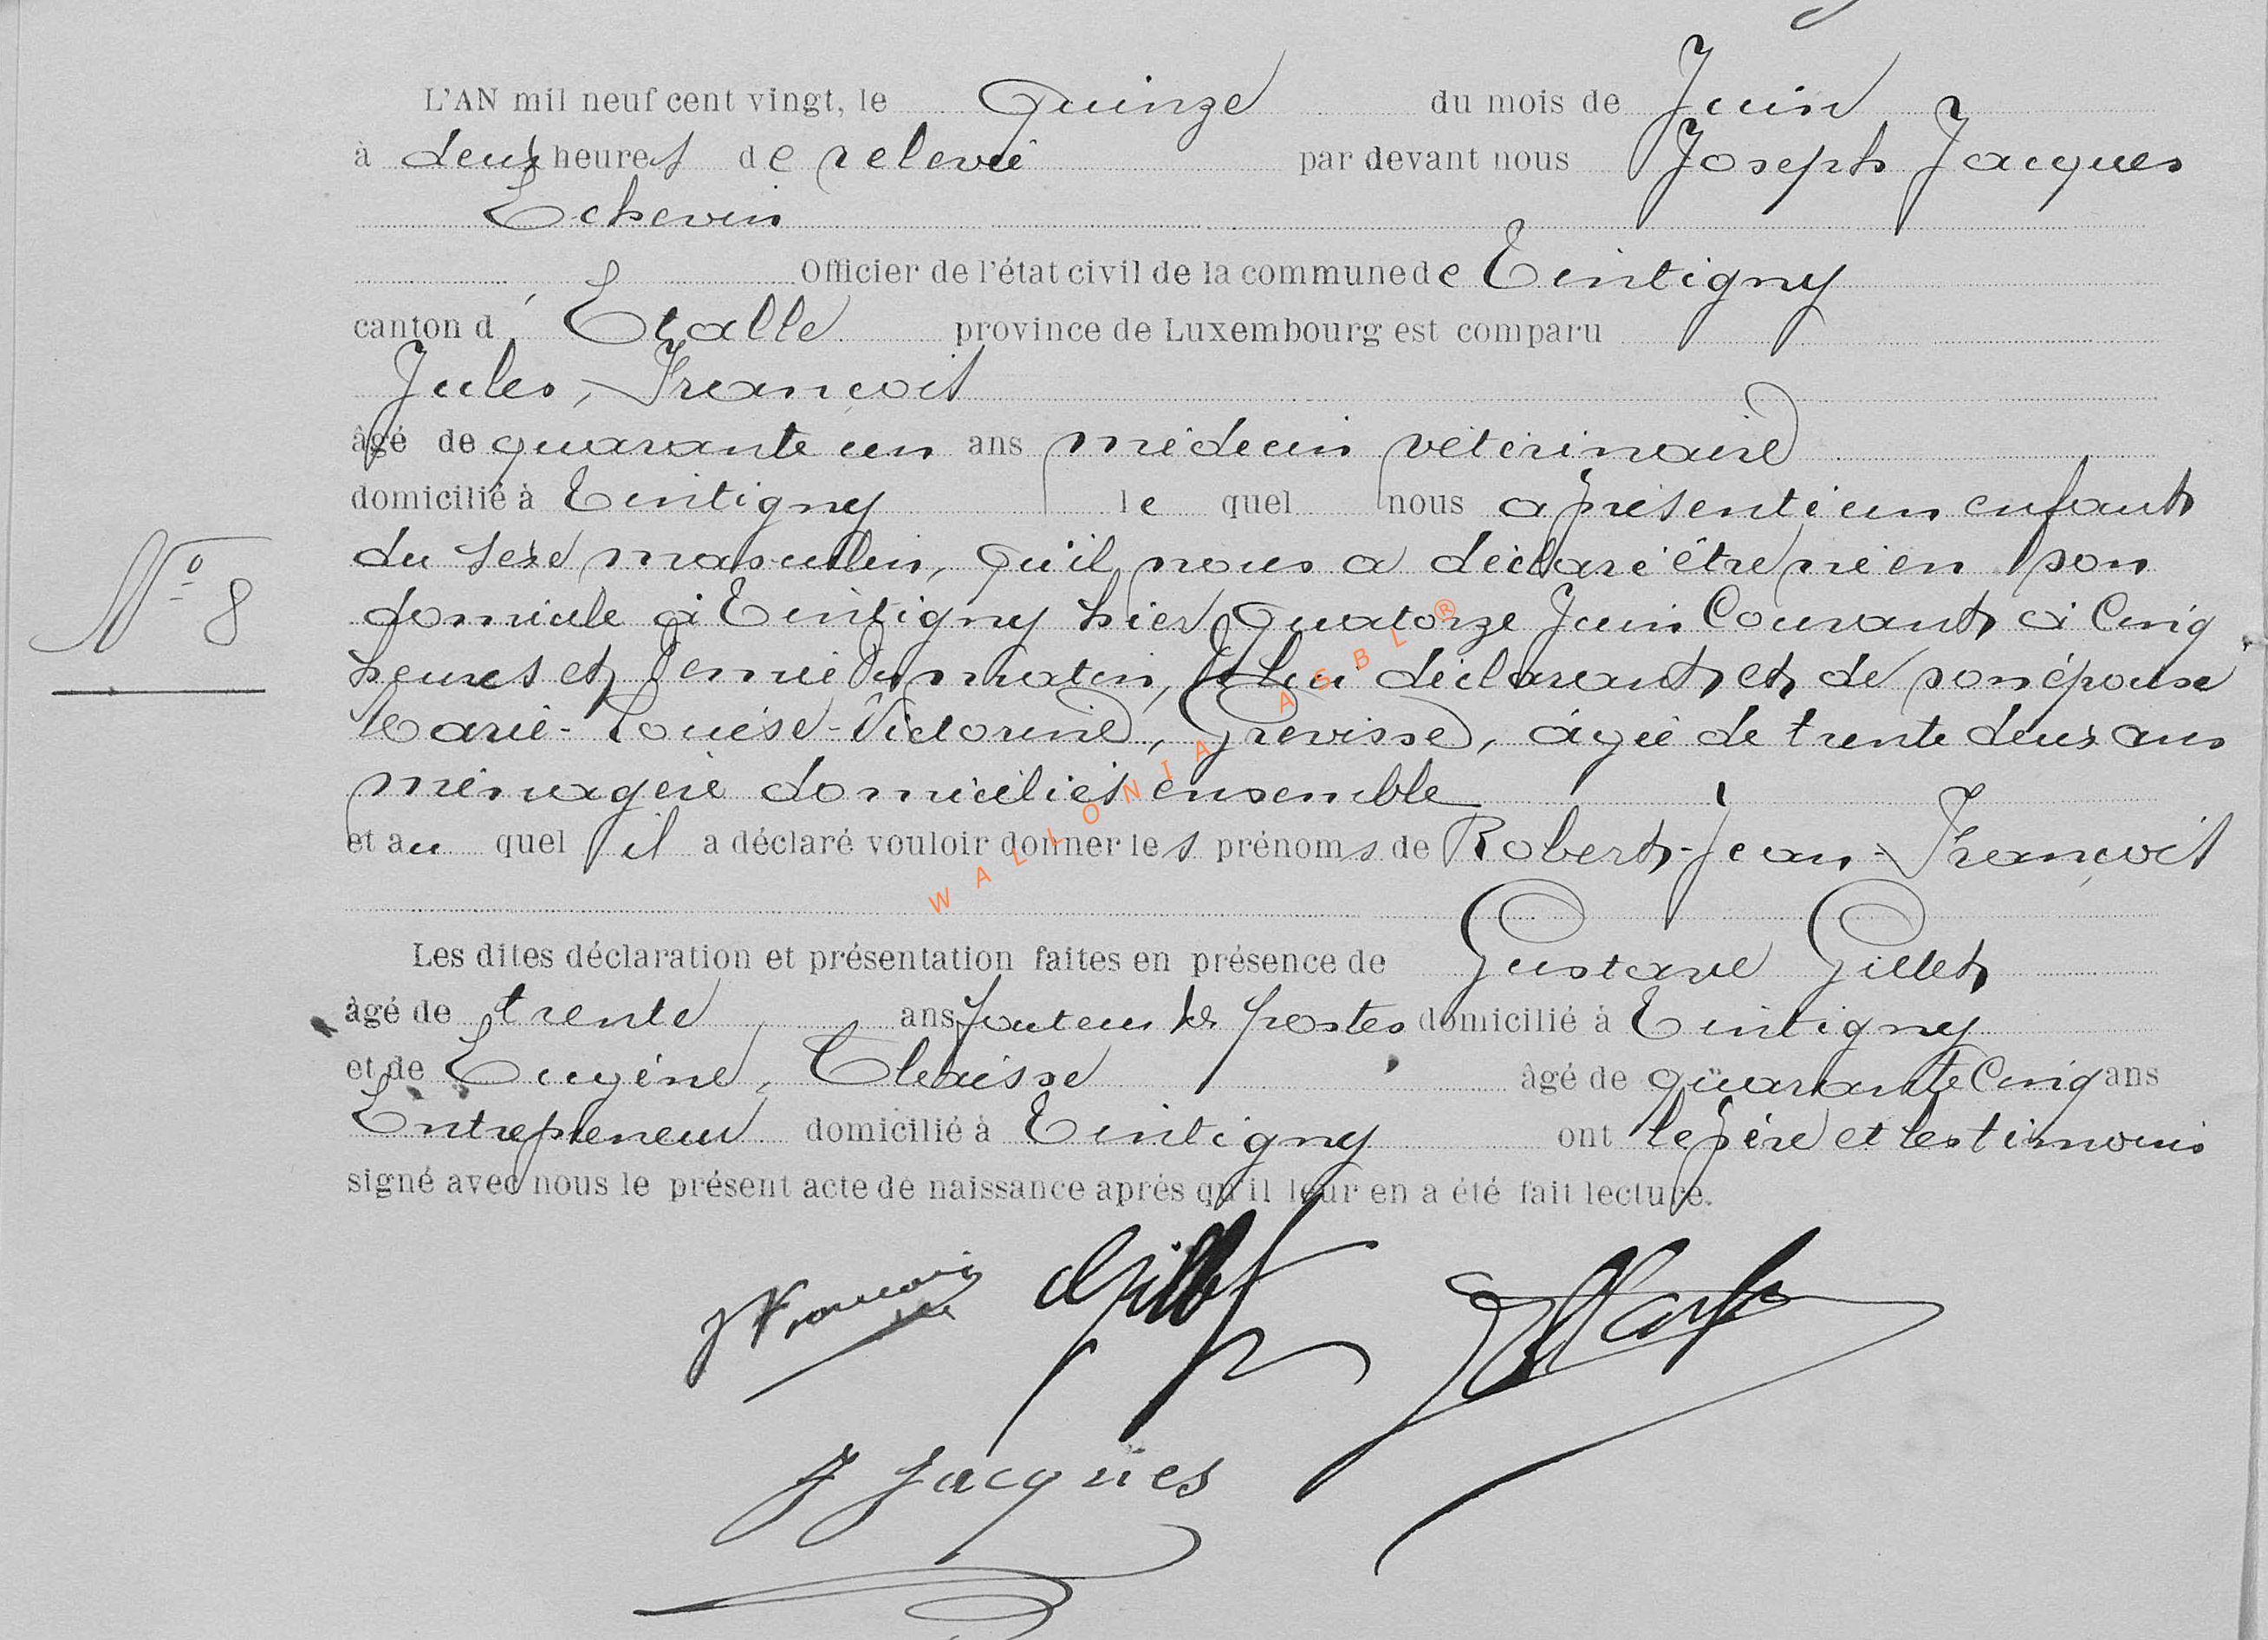 L'AN mil neuf cent vingt, le Quinze du mois de Juin
à deux heures de relevée par devant nous Joseph Jacques
Echevin
Officier de l'état civil de la commune de Tintigny
canton d'Etalle province de Luxembourg est comparu
Jules, François
âgé de quarante un ans médecin vétérinaire
domicilié à Tintigny le quel nous a présenté un enfant
du sexe masculin, qu'il nous a déclaré être né en son
N° 8
domicile à Tintigny hier Quatorze Juin Courant à Cinq
heures et demie du matin, de lui déclarant et de son épouse
Marie-Louise-Victorine, Grevisse, âgée de trente deux ans
ménagère domiciliés ensemble
et au quel il a déclaré vouloir donner les prénoms de Robert-Jean-François
Les dites déclaration et présentation faites en présence de Gustave Gillet
âgé de trente ans facteur des postes domicilié à Tintigny
et de Eugène, Claisse âgé de quarante Cinq ans
Entrepreneur domicilié à Tintigny ont le père et les témoins
signé avec nous le présent acte de naissance après qu'il leur en a été fait lecture.
J François Gillet
J Jacques
WALLONIA ASBL®